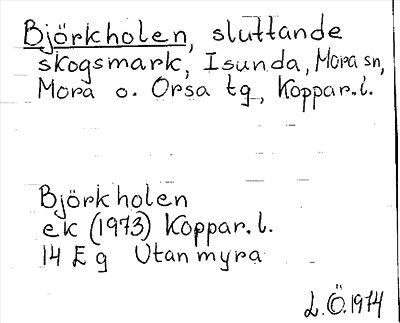 Björkholen, sluttande
skogsmark, Isunda, Mora sn,
Mora o. Orsa tg, Koppar.l.
Björkholen
ek (1973) Koppar.l.
14 E g Utanmyra
L.Ö.1974